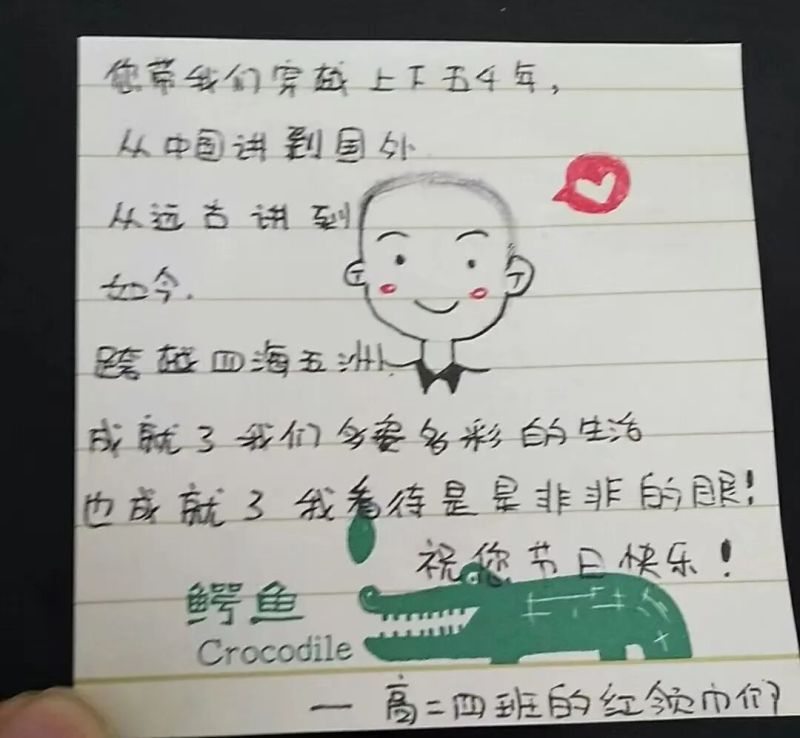 您带我们穿越上下五千年，
从中国讲到国外
从远古讲到
如今.
跨越四海五洲.
成就了我们多姿多彩的生活
也成就了我看待是是非非的眼!
祝您节日快乐!
鳄鱼
Crocodile
一 高二四班的红领巾们